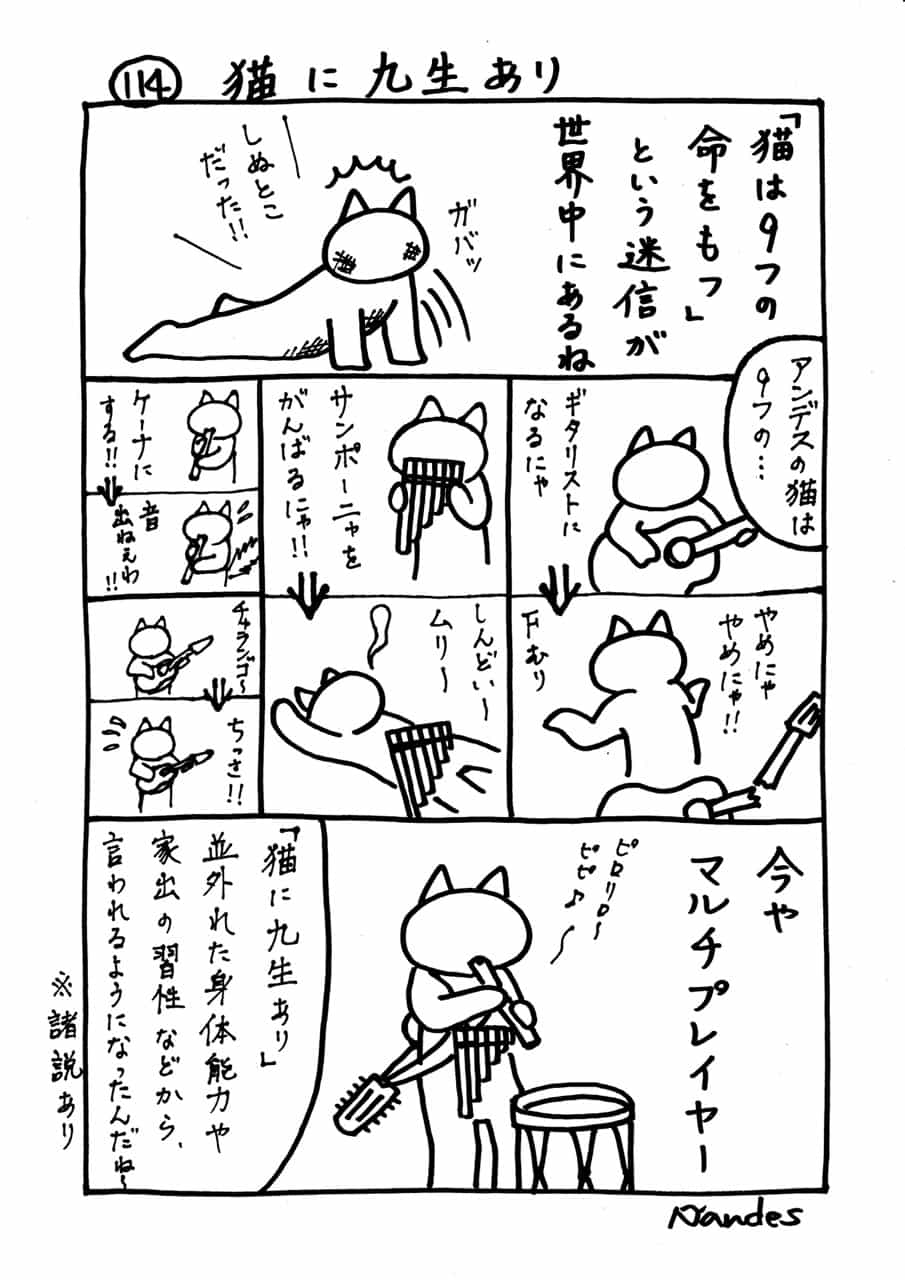 114 猫に九生あり
「猫は9つの
命をもつ」
という迷信が
世界中にあるね
ガバッ
しぬとこ
だった!!
アンデスの猫は
9つの…
ギタリストに
なるにゃ
やめにゃ
やめにゃ!!
Fむり
サンポーニャを
がんばるにゃ!!
しんどい~
ムリ~
ケーナに
する!!
音
出ねぇわ!!
チャランゴ~
ちっさ!!
今や
マルチプレイヤー
ピロリロ~
ピピ♪~
「猫に九生あり」
並外れた身体能力や
家出の習性などから、
言われるようになったんだね~
※諸説あり
Nandes